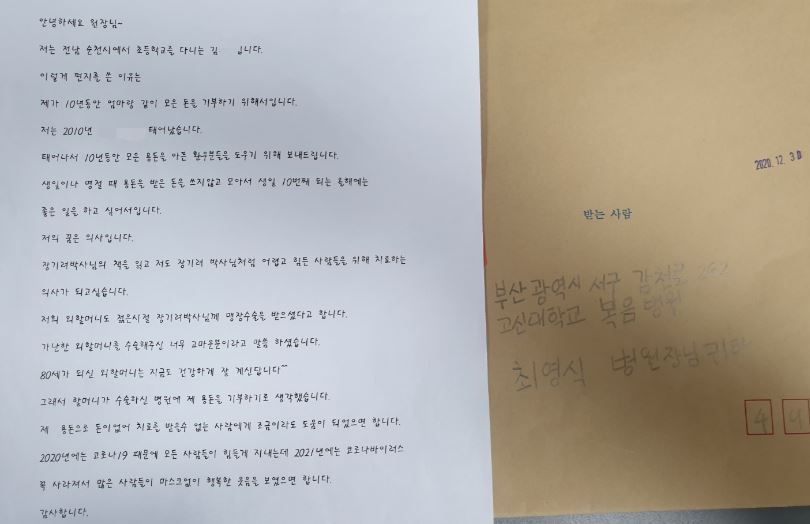 안녕하세요 원장님~
저는 전남 순천시에서 초등학교를 다니는 김 입니다.
이렇게 편지를 쓴 이유는
제가 10년동안 엄마랑 같이 모은 돈을 기부하기 위해서입니다.
저는 2010년 태어났습니다.
태어나서 10년동안 모은 용돈을 아픈 환우분들을 도우기 위해 보내드립니다.
생일이나 명절 때 용돈을 받은 돈을 쓰지않고 모아서 생일 10번째 되는 올해에는
좋은 일을 하고 싶어서입니다.
저의 꿈은 의사입니다.
장기려박사님의 책을 읽고 저도 장기려 박사님처럼 어렵고 힘든 사람들을 위해 치료하는
의사가 되고싶습니다.
저희 외할머니도 젊은시절 장기려박사님께 맹장수술을 받으셨다고 합니다.
가난한 외할머니를 수술해주신 너무 고마운분이라고 말씀 하셨습니다.
80세가 되신 외할머니는 지금도 건강하게 잘 계신답니다^^
그래서 할머니가 수술하신 병원에 제 용돈을 기부하기로 생각했습니다.
제 용돈으로 돈이없어 치료를 받을수 없는 사람에게 조금이라도 도움이 되었으면 합니다.
2020년에는 코로나19 때문에 모든 사람들이 힘들게 지내는데 2021년에는 코로나바이러스
꼭 사라져서 많은 사람들이 마스크없이 행복한 웃음을 보였으면 합니다.
감사합니다.
2020. 12. 3 0
받는 사람
부산광역시 서구 감천로 262
고신대학교 복음병원
최영식 병원장님귀하
4 9